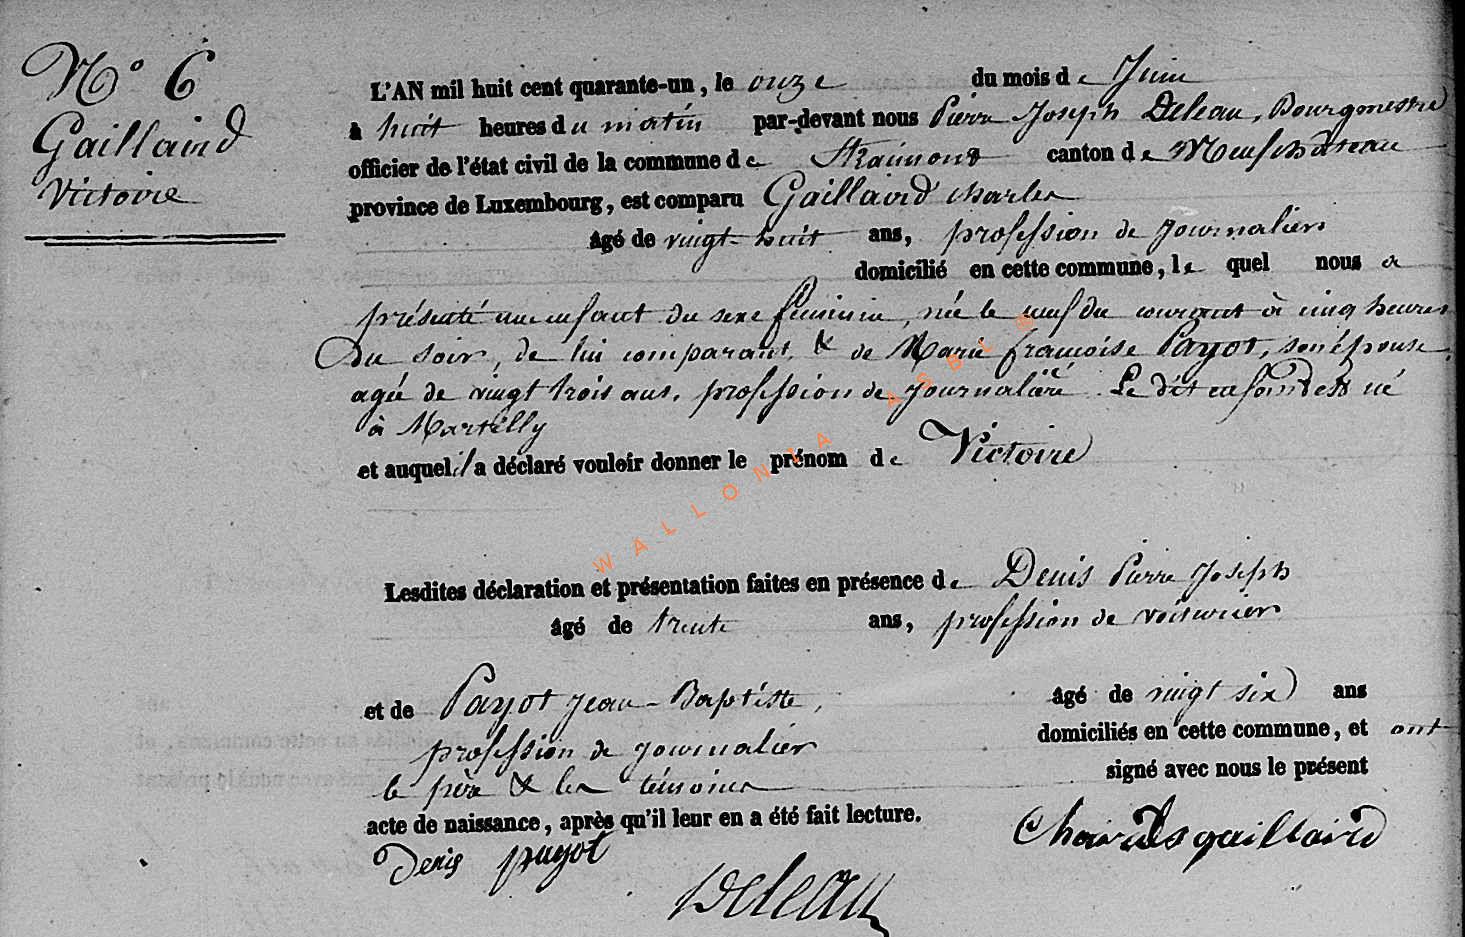 N° 6
Gaillaird
Victoire
L'AN mil huit cent quarante-un, le onze du mois de Juin
à huit heures du matin par-devant nous Pierre Joseph Deleau, Bourgmestre
officier de l'état civil de la commune de Straimont canton de Neufchateau
province de Luxembourg, est comparu Gaillaird charles
âgé de vingt-huit ans, profession de journalier
domicilié en cette commune, le quel nous a
présenté un enfant du sexe féminin, née le neuf du courant à cinq heures
Du soir, de lui comparant, & de Marie françoise Payot, son épouse,
agée de vingt trois ans, profession de journalière. Le dit enfant est né
à Martilly
et auquel il a déclaré vouloir donner le prénom de Victoire
WALLONIA ASBL ®
Lesdites déclaration et présentation faites en présence de Denis Pierre Joseph
âgé de trente ans, profession de voiturier
et de Payot Jean-Baptiste, âgé de vingt six ans
profession de journalier domiciliés en cette commune, et ont
le père & les témoins signé avec nous le présent
acte de naissance, après qu'il leur en a été fait lecture.
Charles gaillaird
Denis payot
Deleau